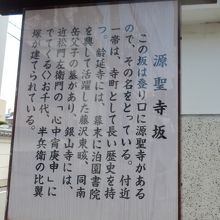 源聖寺坂
この坂は登り口に源聖寺がある
ので、その名をとっている。付近
一帯は、寺町として長い歴史を持
つ。齢延寺には、幕末に泊園書院
を興して活躍した藤沢東畡、同南
岳父子の墓があり、銀山寺には、
近松門左衛門の「心中宵庚申」に
でてくる〈お千代、半兵衛の比翼
塚が建てられている。